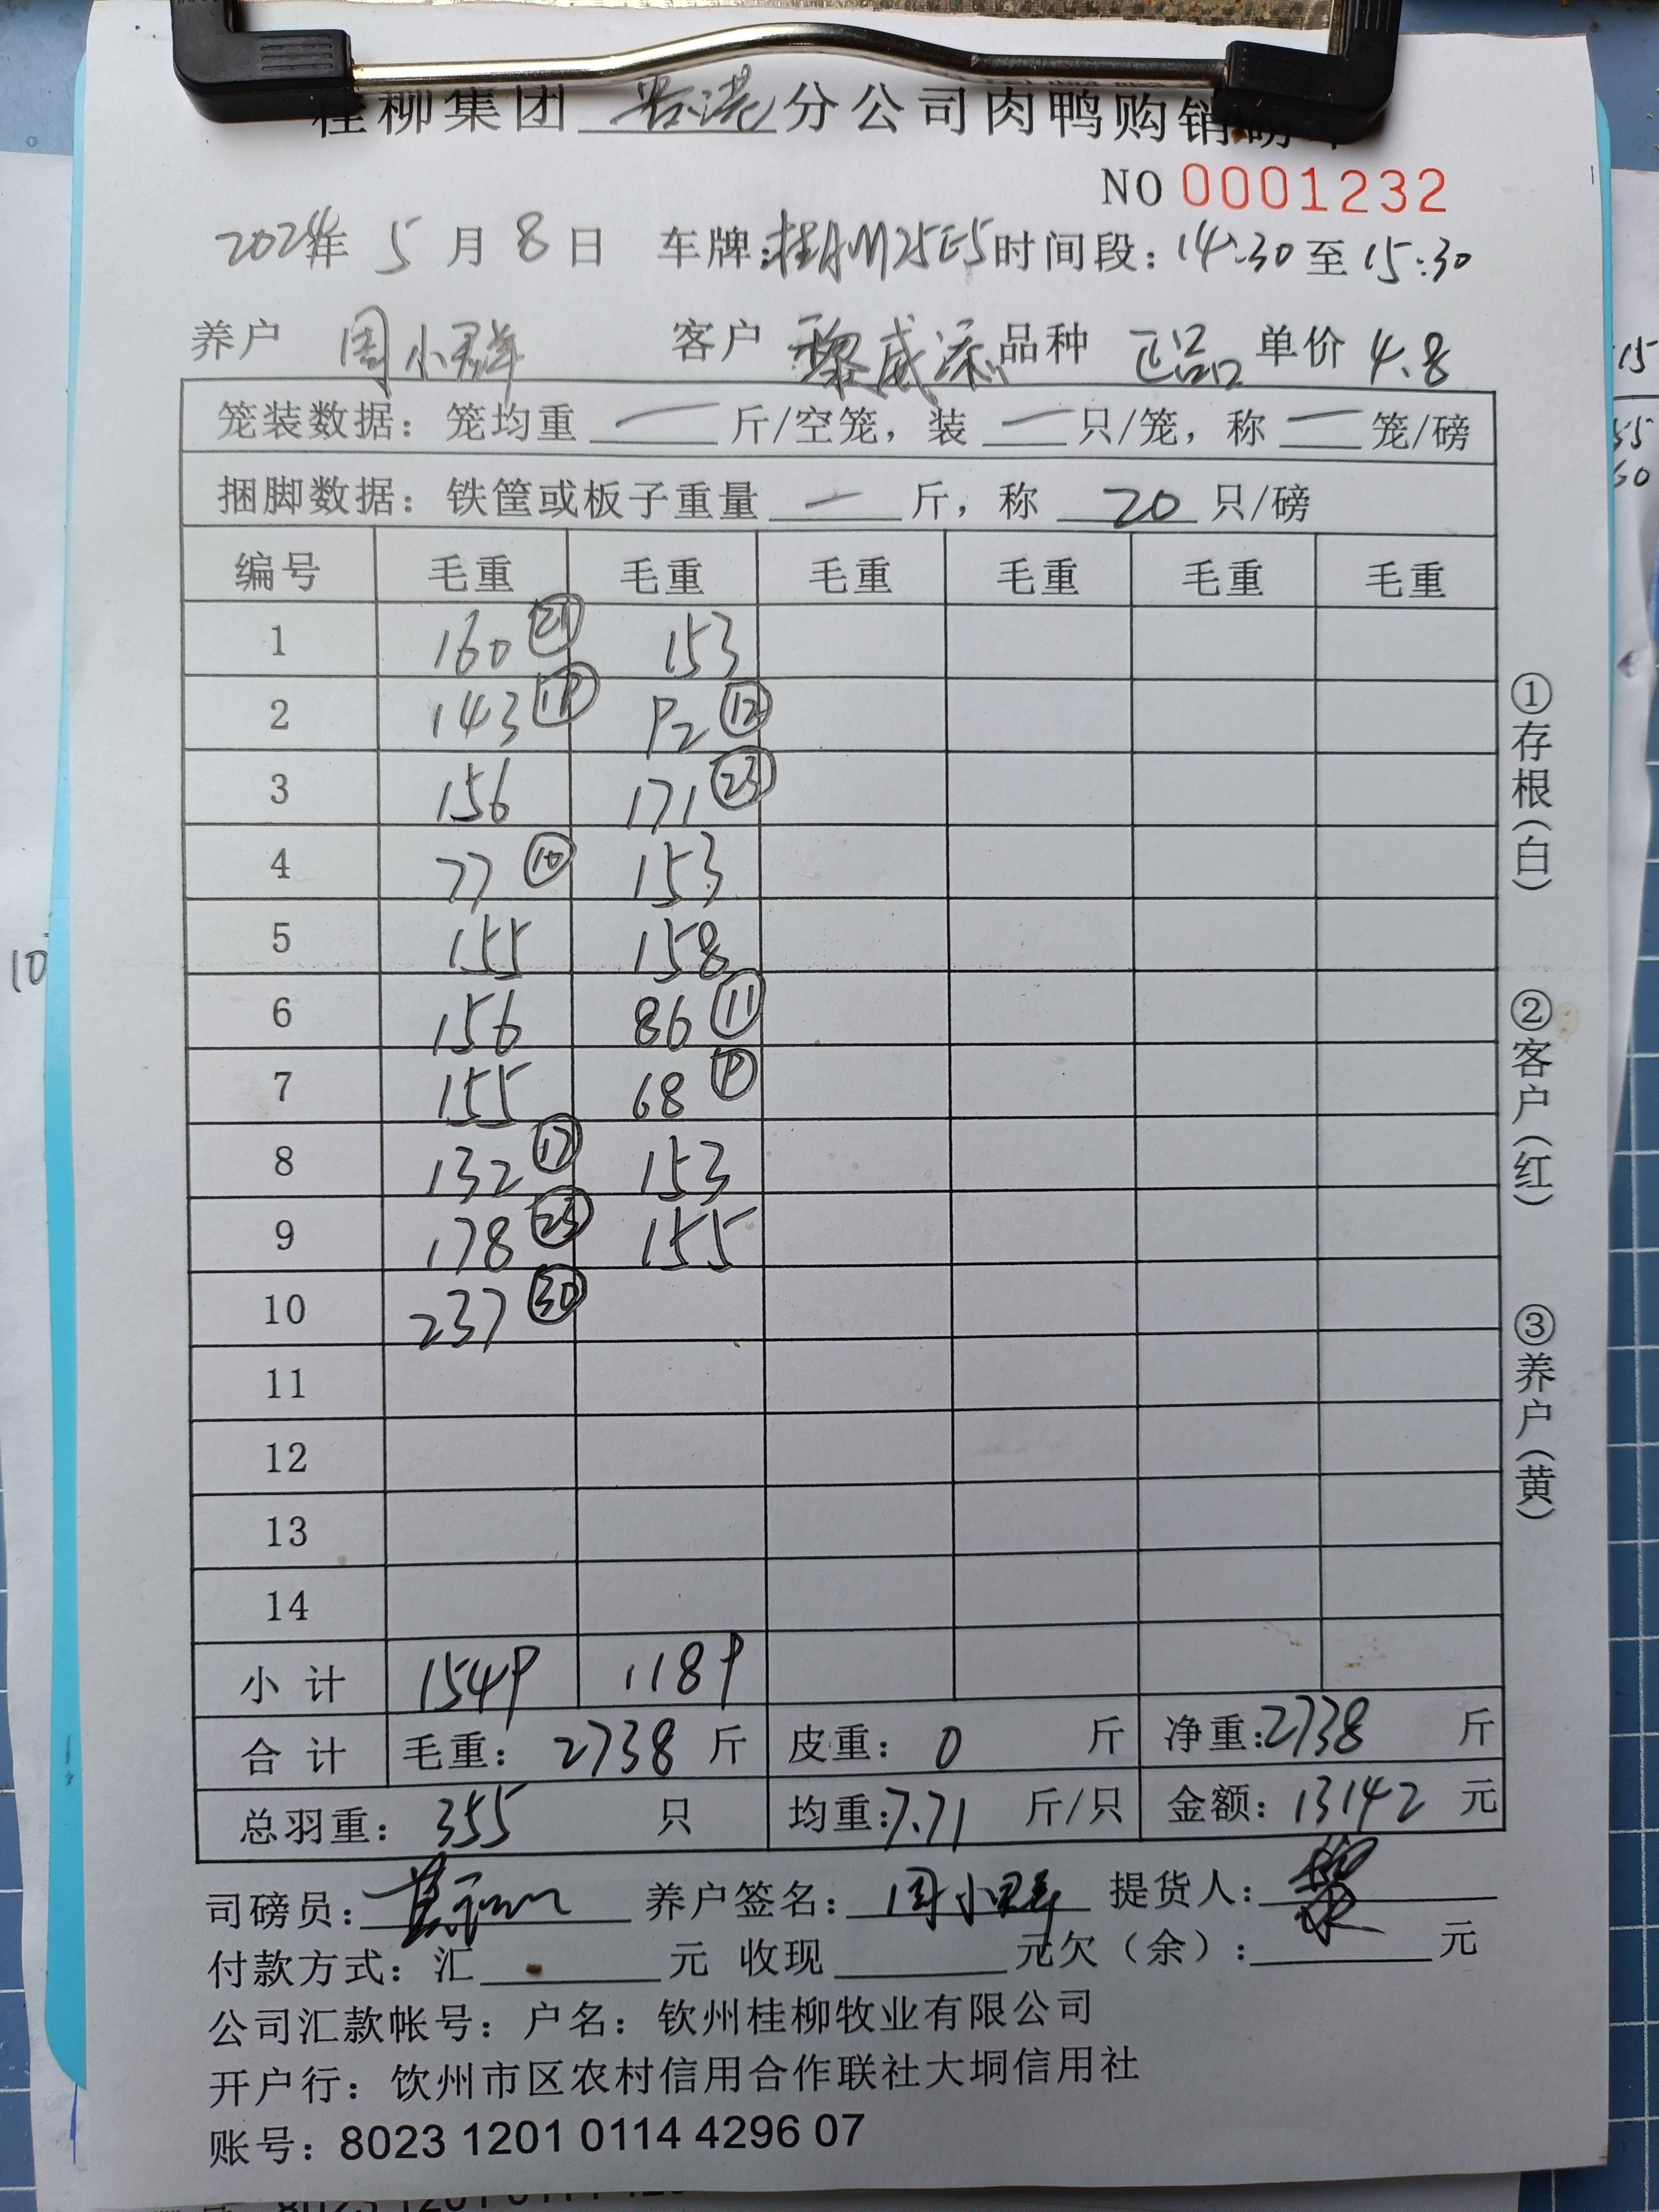 桂柳集团 贵港 分公司肉鸭购销磅单
NO 0001232
2024年 5 月 8 日 车牌:桂AM25E5 时间段: 14:30 至 15:30
养户 周小群 客户 黎威添 品种 正品 单价 4.8
笼装数据: 笼均重 一 斤/空笼, 装 一 只/笼, 称 一 笼/磅
捆脚数据: 铁筐或板子重量 一 斤, 称 20 只/磅
编号 毛重 毛重 毛重 毛重 毛重 毛重
1 160 ㉑ 153
2 143 92 ⑫
3 156 171 ㉓
4 77 ⑩ 153
5 155 158
6 156 86 ⑪
7 155 68 ⑨
8 132 ⑰ 153
9 178 155
10 237 ㉚
11
12
13
14
小 计 1549 1189
合 计 毛重: 2738 斤 皮重: 0 斤 净重:2738 斤
总羽重: 355 只 均重:7.71 斤/只 金额: 13142 元
司磅员: 养户签名: 周小群 提货人: 黎
付款方式: 汇 元 收现 元欠(余): 元
公司汇款帐号: 户名: 钦州桂柳牧业有限公司
开户行: 钦州市区农村信用合作联社大垌信用社
账号: 8023 1201 0114 4296 07
①存根(白)
②客户(红)
③养户(黄)
15
10